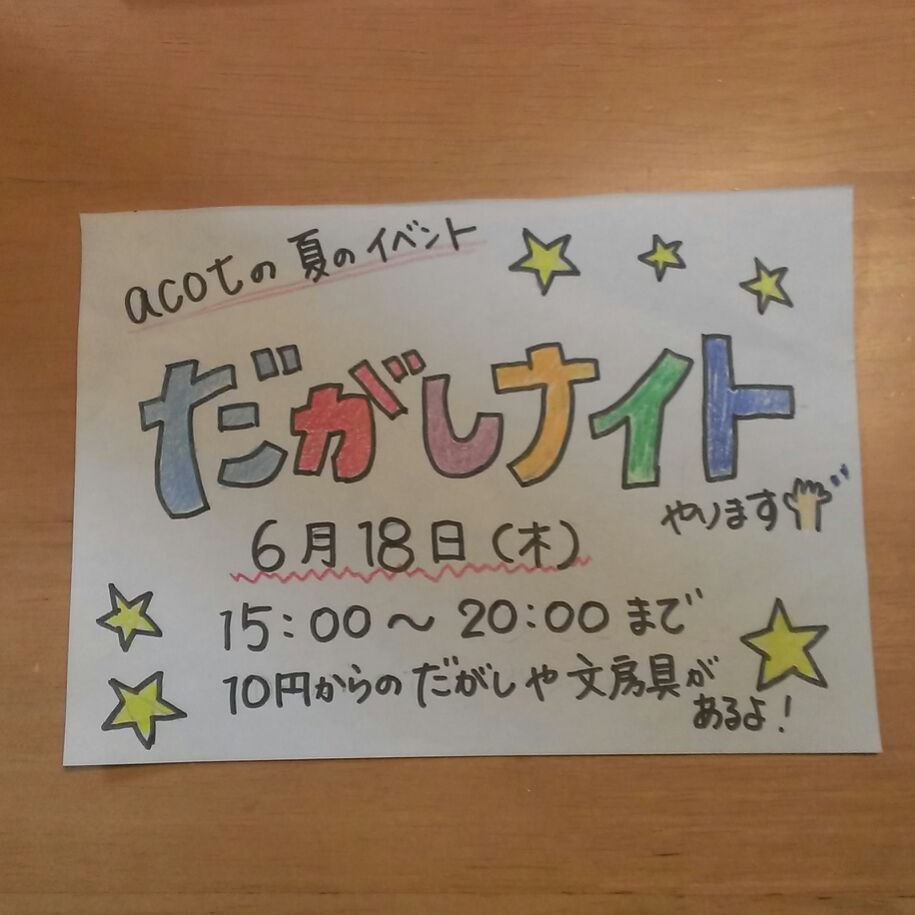 acotの夏のイベント
だがしナイト
やります
6月18日(木)
15:00〜20:00まで
10円からのだがしや文房具が
あるよ!